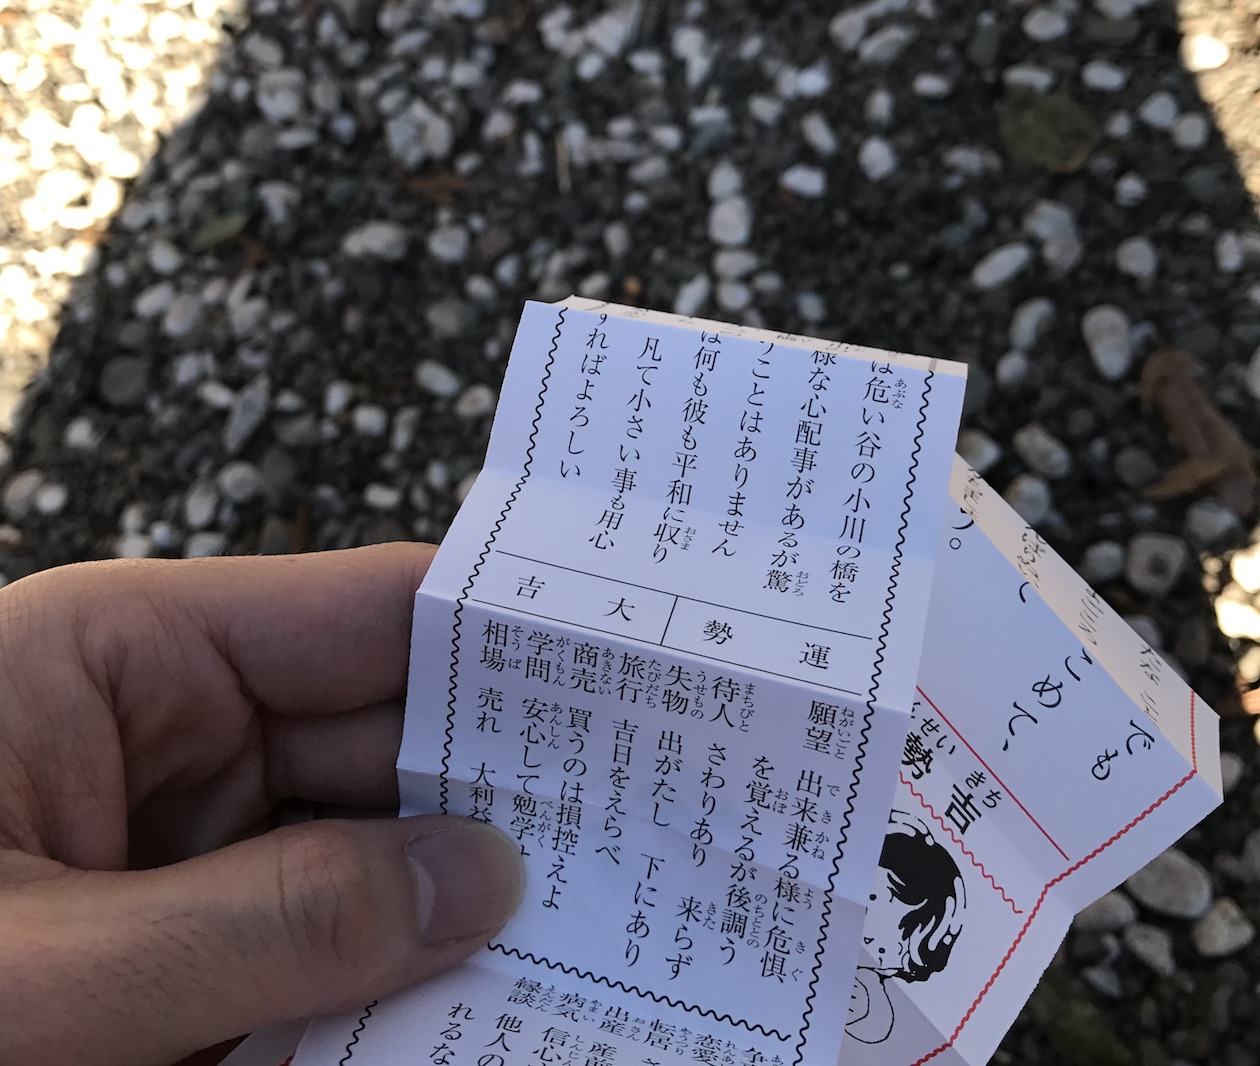 は危い谷の小川の橋を
様な心配事があるが驚
うことはありません
は何も彼も平和に収り
凡て小さい事も用心
ればよろしい
運勢 大吉
願望 出来兼る様に危惧
を覚えるが後調う
待人 さわりあり 来らず
失物 出がたし 下にあり
旅行 吉日をえらべ
商売 買うのは損控えよ
学問 安心して勉学せ
相場 売れ 大利益
恋愛
転居
出産 産
病気 信心
縁談 他人の
れるな
でも
こめて、
勢 吉